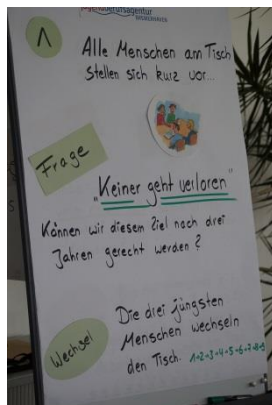 1
Alle Menschen am Tisch
stellen sich kurz vor...
Frage
"Keiner geht verloren"
Können wir diesem Ziel nach drei
Jahren gerecht werden?
Die drei jüngsten
Menschen wechseln
Wechsel
den Tisch. 1→2→3→4→5→6→7→8→9